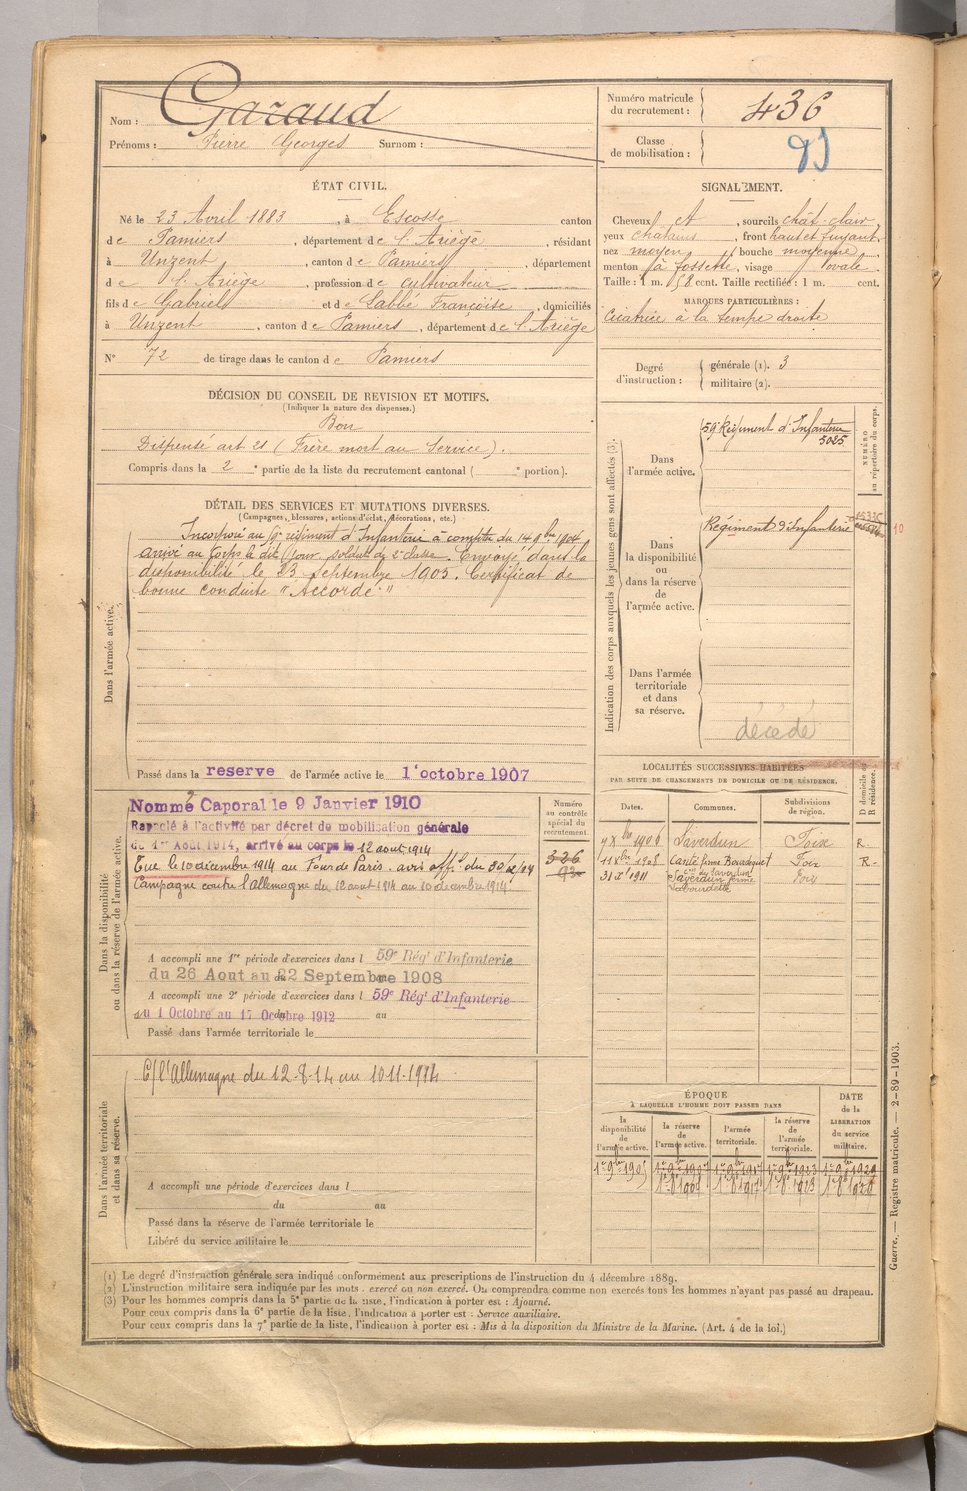 Nom : Garaud
Prénoms : Pierre Georges Surnom :
Numéro matricule du recrutement : 436
Classe de mobilisation :
ÉTAT CIVIL.
Né le 23 Avril 1883, à Escosse canton
de Pamiers, département de l'Ariège, résidant
à Unzent, canton de Pamiers, département
de l'Ariège, profession de cultivateur
fils de Gabriel et de Labbé Françoise, domiciliés
à Unzent, canton de Pamiers, département de l'Ariège
N° 72 de tirage dans le canton de Pamiers
SIGNALEMENT.
Cheveux ct, sourcils chât. clair
yeux chatains, front haut et fuyant,
nez moyen, bouche moyenne,
menton à fossette, visage ovale.
Taille : 1 m. 58 cent. Taille rectifiée : 1 m. cent.
MARQUES PARTICULIÈRES :
Cicatrice à la tempe droite
Degré d'instruction : générale (1). 3
militaire (2).
DÉCISION DU CONSEIL DE REVISION ET MOTIFS.
(Indiquer la nature des dispenses.)
Bon
Dispensé art. 21 (Frère mort au Service).
Compris dans la 2e partie de la liste du recrutement cantonal ( e portion).
DÉTAIL DES SERVICES ET MUTATIONS DIVERSES.
(Campagnes, blessures, actions d'éclat, décorations, etc.)
Dans l'armée active.
Incorporé au régiment d'Infanterie à compter du 14 9bre 1904
arrivé au Corps le dit jour soldat de 2e classe. Envoyé dans la
disponibilité le 23 septembre 1905. Certificat de
bonne conduite "Accordé."
Passé dans la reserve de l'armée active le 1er octobre 1907
Indication des corps auxquels les jeunes gens sont affectés (3).
NUMÉRO au répertoire du corps.
Dans l'armée active.
59e Régiment d'Infanterie
5025
Dans la disponibilité ou dans la réserve de l'armée active.
Régiment d'Infanterie
Dans l'armée territoriale et dans sa réserve.
décédé
Dans la disponibilité ou dans la réserve de l'armée active.
Nommé Caporal le 9 Janvier 1910
Rappelé à l'activité par décret de mobilisation générale
du 1er Aout 1914, arrivé au corps le 12 aout 1914
Tué le 10 décembre 1914 au Four de Paris. avis off.el du 30/12/14
Campagne contre l'Allemagne du 12 aout 1914 au 10 décembre 1914
Numéro au contrôle spécial du recrutement.
336
A accompli une 1re période d'exercices dans l 59e Régt d'Infanterie
du 26 Aout au 22 Septembre 1908
A accompli une 2e période d'exercices dans l 59e Régt d'Infanterie
du 1 Octobre au 17 Octobre 1912 au
Passé dans l'armée territoriale le
LOCALITÉS SUCCESSIVES HABITÉES
PAR SUITE DE CHANGEMENTS DE DOMICILE OU DE RÉSIDENCE.
Dates. Communes. Subdivisions de région. D domicile R résidence.
7 Xbre 1906 Saverdun Foix R.
11 Xbre 1908 Canté ferme Bourdouet Foix R.
31 Xe 1911 Saverdun ferme Labourdette Foix
Dans l'armée territoriale et dans sa réserve.
C/ l'Allemagne du 12-8-14 au 10-11-1914
A accompli une période d'exercices dans l
du au
Passé dans la réserve de l'armée territoriale le
Libéré du service militaire le
ÉPOQUE
À LAQUELLE L'HOMME DOIT PASSER DANS
la disponibilité de l'armée active. la réserve de l'armée active. l'armée territoriale. la réserve de l'armée territoriale. DATE de la LIBÉRATION du service militaire.
1er 9bre 1905 1er 9bre 1907 1er 9bre 1917 1er 9bre 1923 1er 9bre 1929
(1) Le degré d'instruction générale sera indiqué conformément aux prescriptions de l'instruction du 4 décembre 1889.
(2) L'instruction militaire sera indiquée par les mots : exercé ou non exercé. On comprendra comme non exercés tous les hommes n'ayant pas passé au drapeau.
(3) Pour les hommes compris dans la 5e partie de la liste, l'indication à porter est : Ajourné.
Pour ceux compris dans la 6e partie de la liste, l'indication à porter est : Service auxiliaire.
Pour ceux compris dans la 7e partie de la liste, l'indication à porter est : Mis à la disposition du Ministre de la Marine. (Art. 4 de la loi.)
Guerre. — Registre matricule. — 2-89-1903.